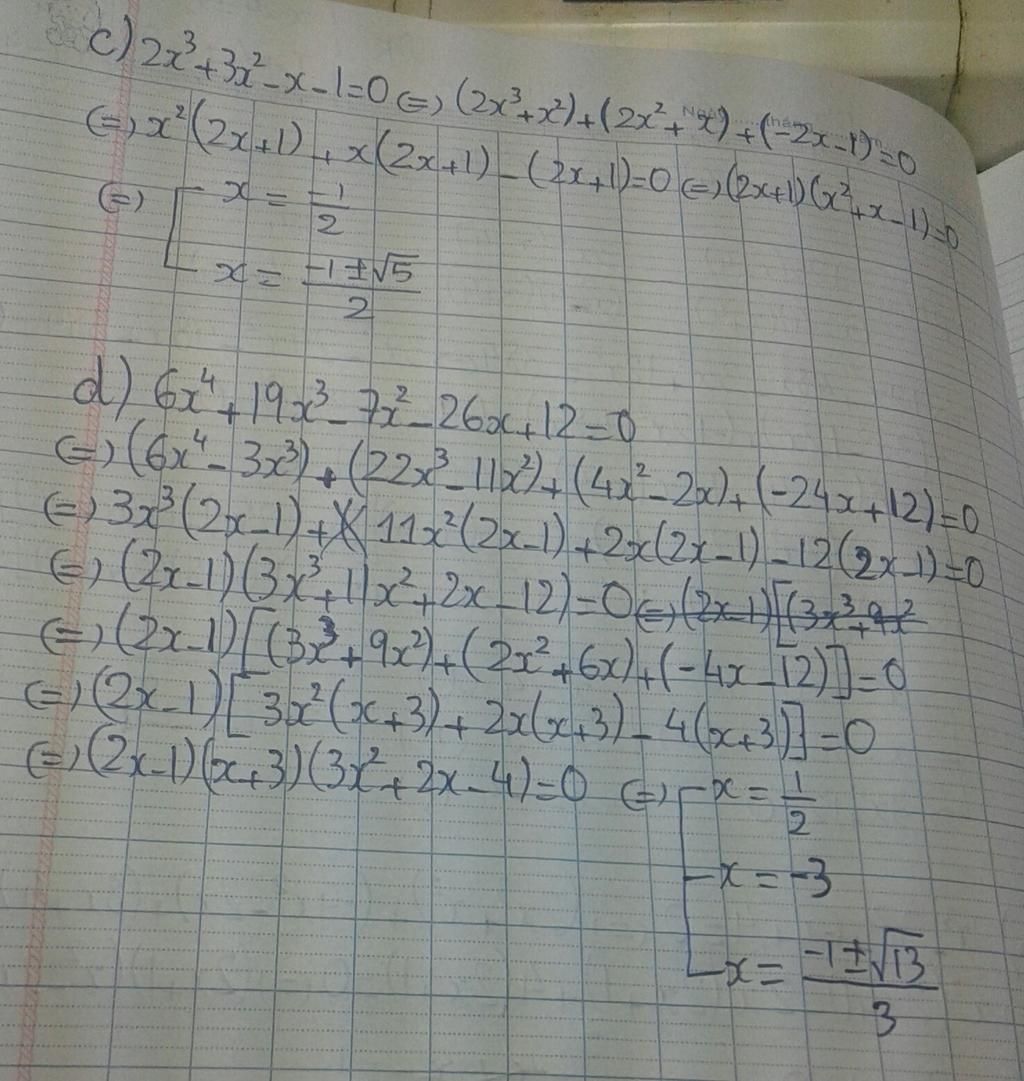 c) 2x³+3x²-x-1=0 (=) (2x³+x²)+(2x²+x)+(-2x-1)=0
(=) x²(2x+1)+x(2x+1)-(2x+1)=0 (=) (2x+1)(x²+x-1)=0
(=) [ x = -1/2
x = (-1±√5)/2
d) 6x⁴+19x³-7x²-26x+12=0
(=) (6x⁴-3x³)+(22x³-11x²)+(4x²-2x)+(-24x+12)=0
(=) 3x³(2x-1)+11x²(2x-1)+2x(2x-1)-12(2x-1)=0
(=) (2x-1)(3x³+11x²+2x-12)=0 (=) (2x-1)[(3x³+9x²
(=) (2x-1)[(3x³+9x²)+(2x²+6x)+(-4x-12)]=0
(=) (2x-1)[3x²(x+3)+2x(x+3)-4(x+3)]=0
(=) (2x-1)(x+3)(3x²+2x-4)=0 (=) [ x = 1/2
x = -3
x = (-1±√13)/3